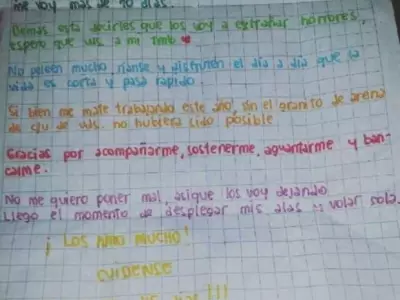 me voy mas de 10 dias.
Demas esta decirles que los voy a extrañar hombres,
espero que uds a mi tmb ❤
No peleen mucho rianse y disfruten el dia a dia que la
vida es corta y pasa rapido.
Si bien me mate trabajando este año, sin el granito de arena
de c/u de uds. no hubiera sido posible
Gracias por acompañarme, sostenerme, aguantarme y ban-
carme.
No me quiero poner mal, asique los voy dejando
Llego el momento de desplegar mis alas y volar sola.
¡LOS AMO MUCHO!
CUIDENSE
!!!